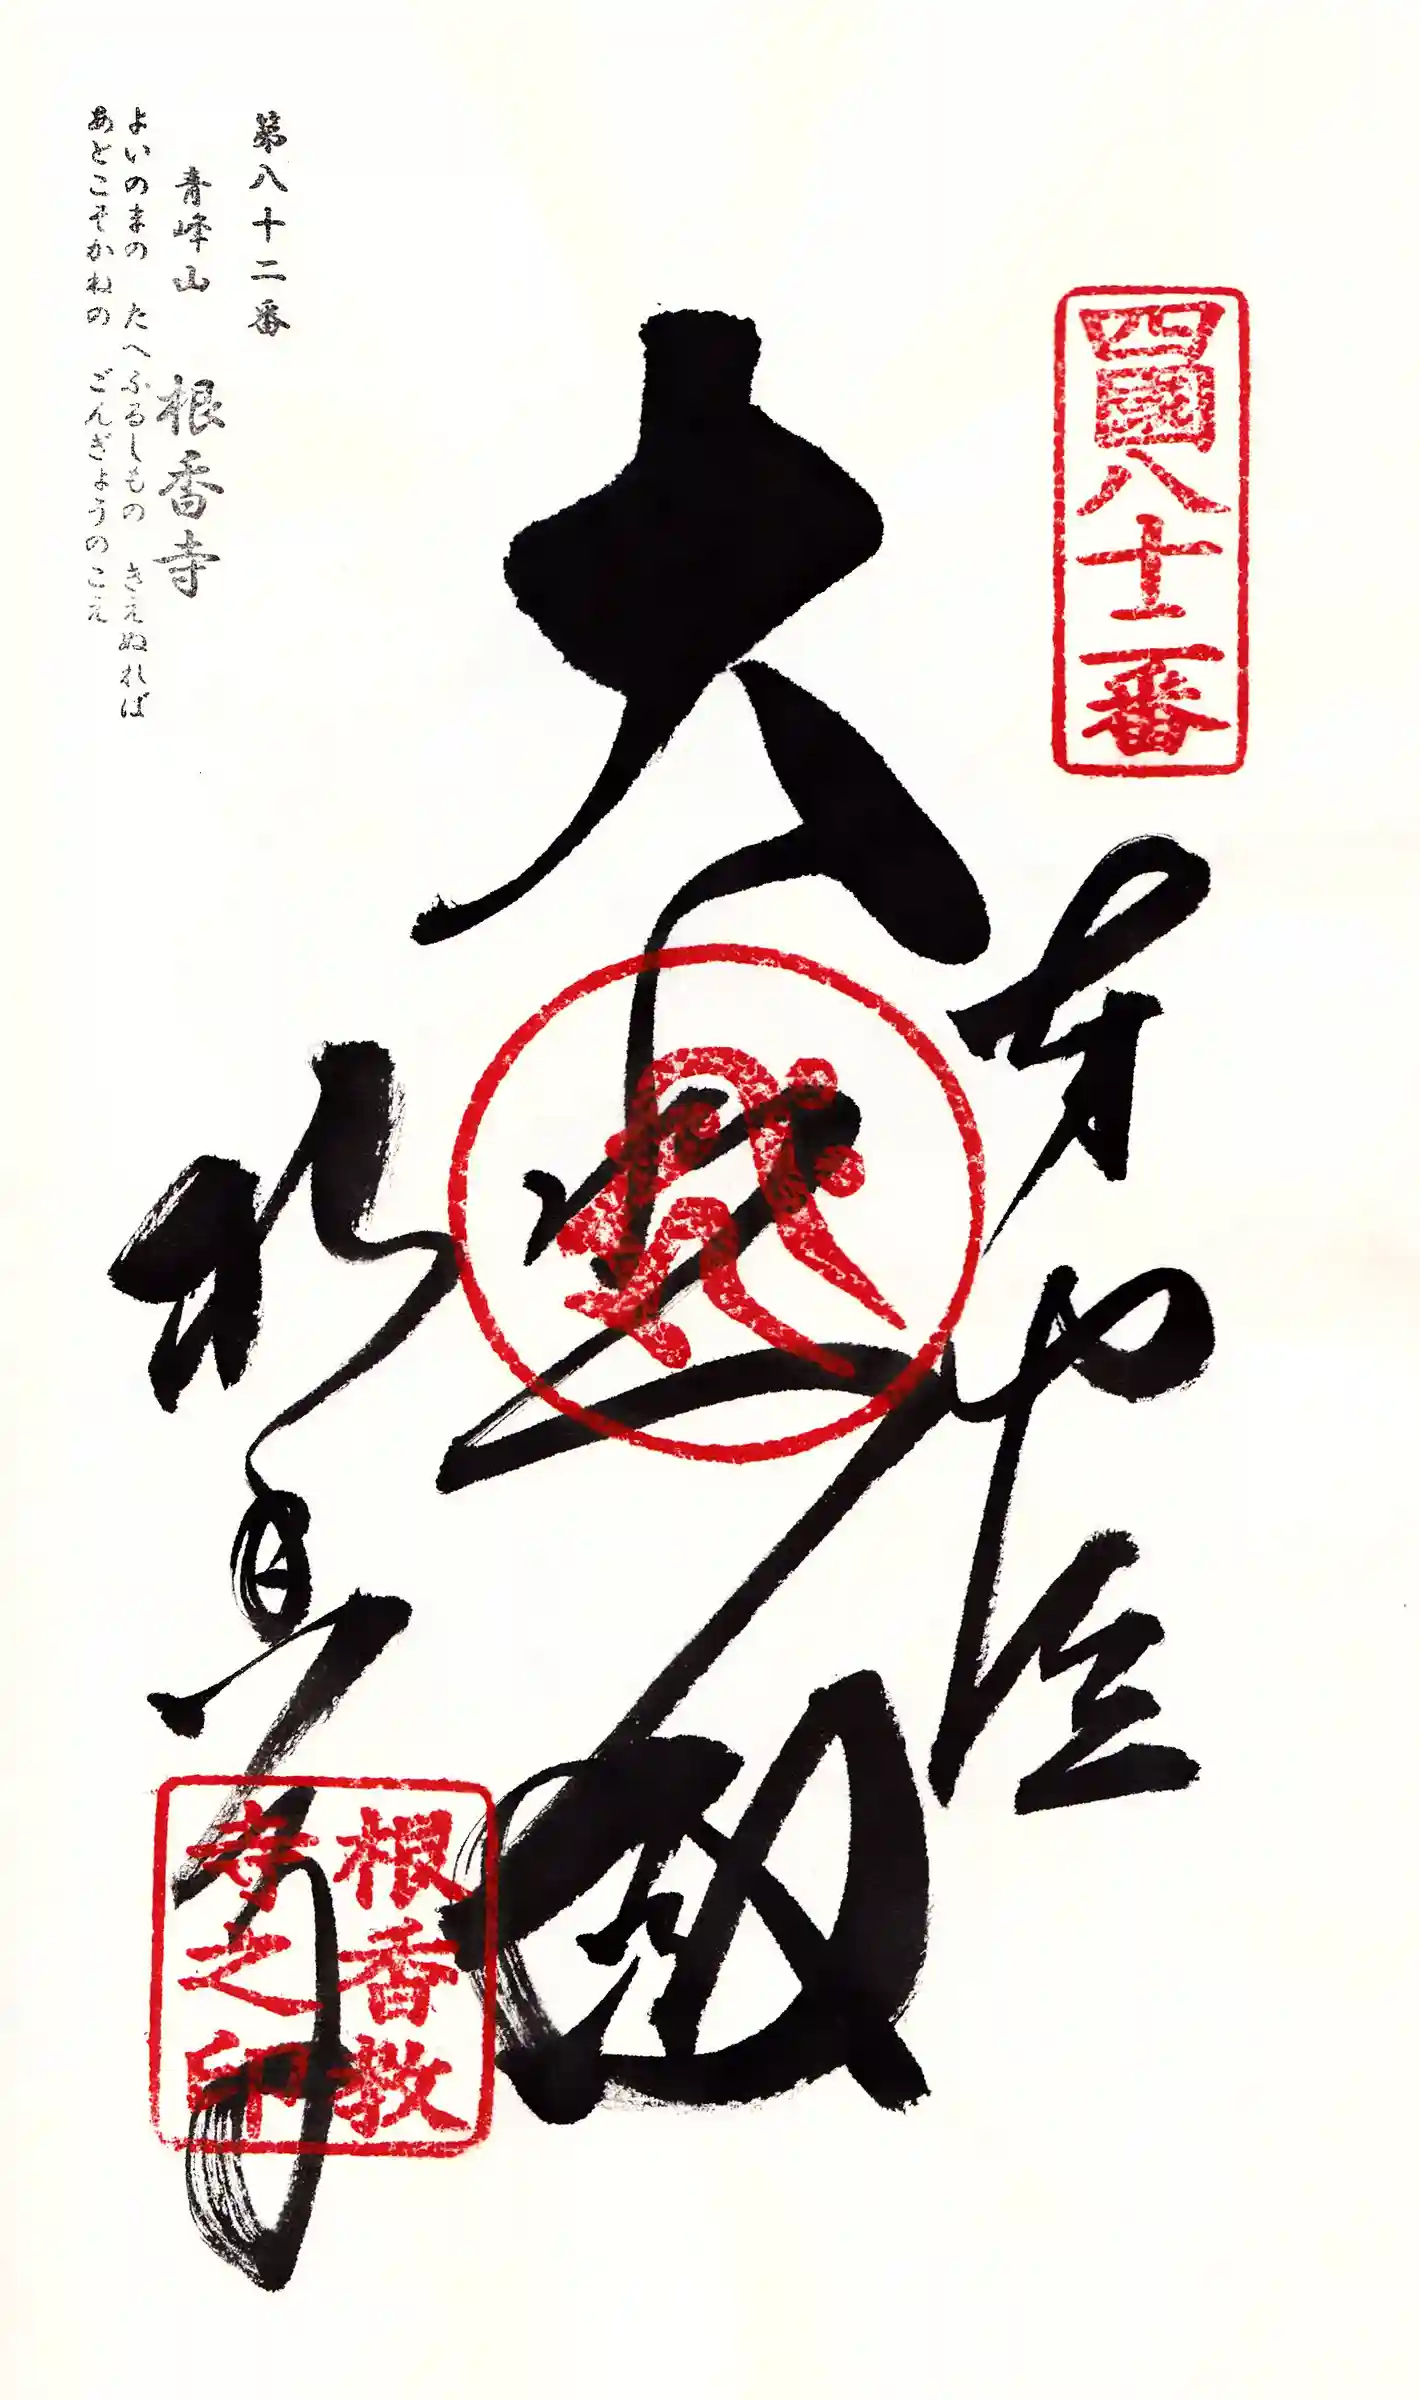 四國八十二番
奉納経
大悲閣
根香寺
根香教
寺之印
第八十二番
青峰山 根香寺
よいのまの たへふるしもの きえぬれば
あとこそかねの ごんぎょうのこえ